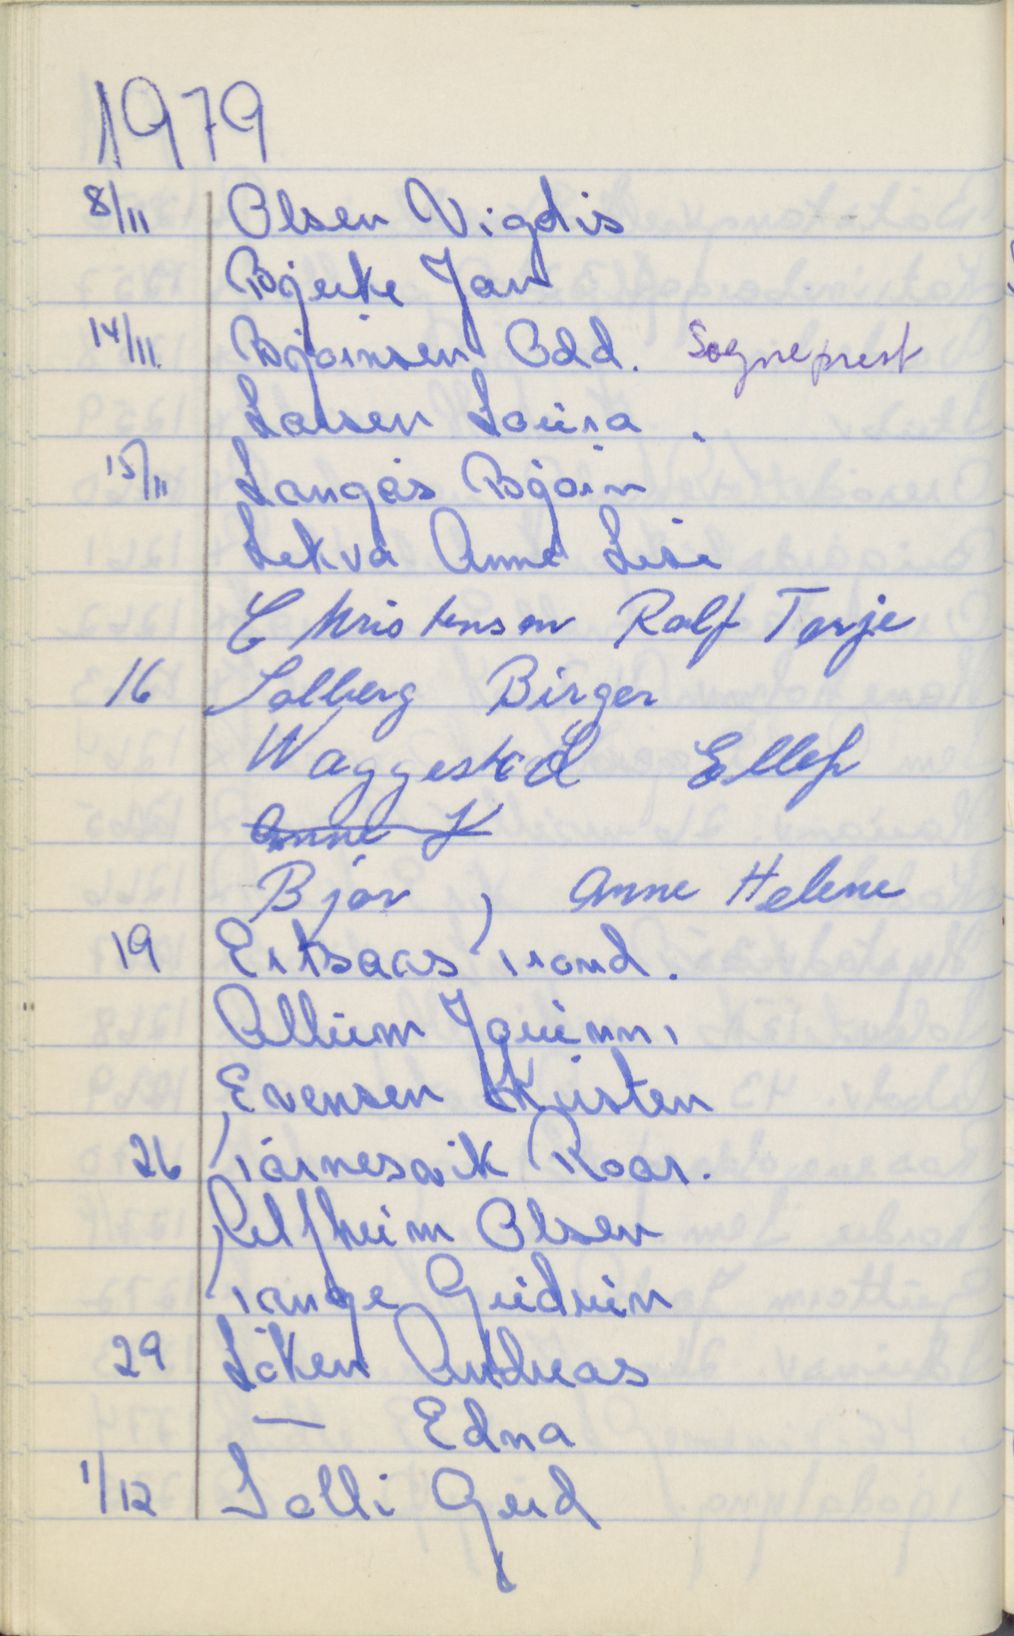 1979
8/11 Olsen Vigdis
Bjerke Jan
14/11. Bjørnsen Odd. Sogneprest
Larsen Laura.
15/11 Langås Bjørn
Lekva Anne Lise
Christensen Ralf Terje
16 Solberg Birger
Waggestad Ellef
Anne K
Bjar, Anne Helene
19 Eriksaas Trond.
Evensen Kirsten
26 Tårnesvik Roar.
Olsen
Tange Gudrun
29 Löken Andreas
— Edna
1/12 Solli Gerd